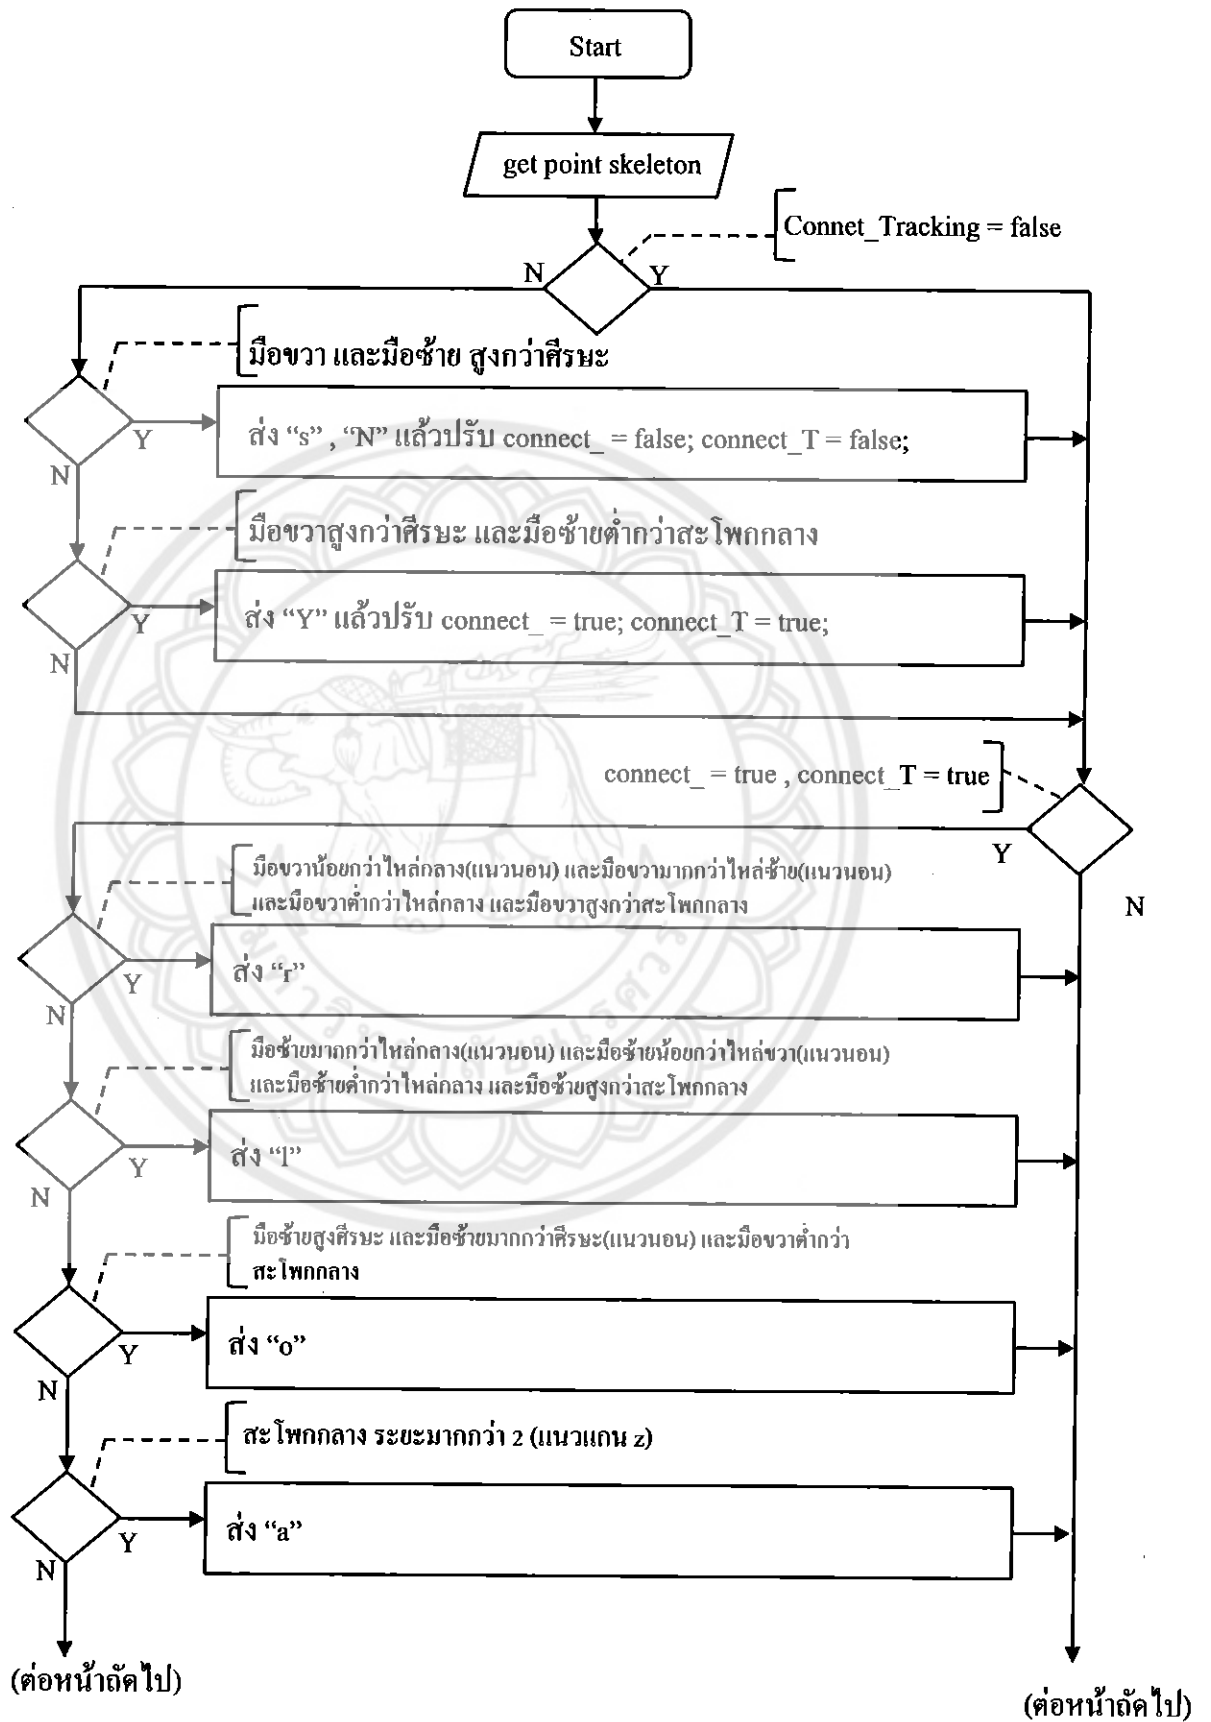 Start
get point skeleton
Connet_Tracking = false
N
Y
มือขวา และมือซ้าย สูงกว่าศีรษะ
Y
ส่ง “s” , “N” แล้วปรับ connect_ = false; connect_T = false;
N
มือขวาสูงกว่าศีรษะ และมือซ้ายต่ำกว่าสะโพกกลาง
Y
ส่ง “Y” แล้วปรับ connect_ = true; connect_T = true;
N
connect_ = true , connect_T = true
Y
N
มือขวาน้อยกว่าไหล่กลาง(แนวนอน) และมือขวามากกว่าไหล่ซ้าย(แนวนอน)
และมือขวาต่ำกว่าไหล่กลาง และมือขวาสูงกว่าสะโพกกลาง
มหาวิทยาลัยนเรศวร
Y
ส่ง “r”
N
มือซ้ายมากกว่าไหล่กลาง(แนวนอน) และมือซ้ายน้อยกว่าไหล่ขวา(แนวนอน)
และมือซ้ายต่ำกว่าไหล่กลาง และมือซ้ายสูงกว่าสะโพกกลาง
Y
ส่ง “l”
N
มือซ้ายสูงศีรษะ และมือซ้ายมากกว่าศีรษะ(แนวนอน) และมือขวาต่ำกว่า
สะโพกกลาง
Y
ส่ง “o”
N
สะโพกกลาง ระยะมากกว่า 2 (แนวแกน z)
Y
ส่ง “a”
N
(ต่อหน้าถัดไป)
(ต่อหน้าถัดไป)